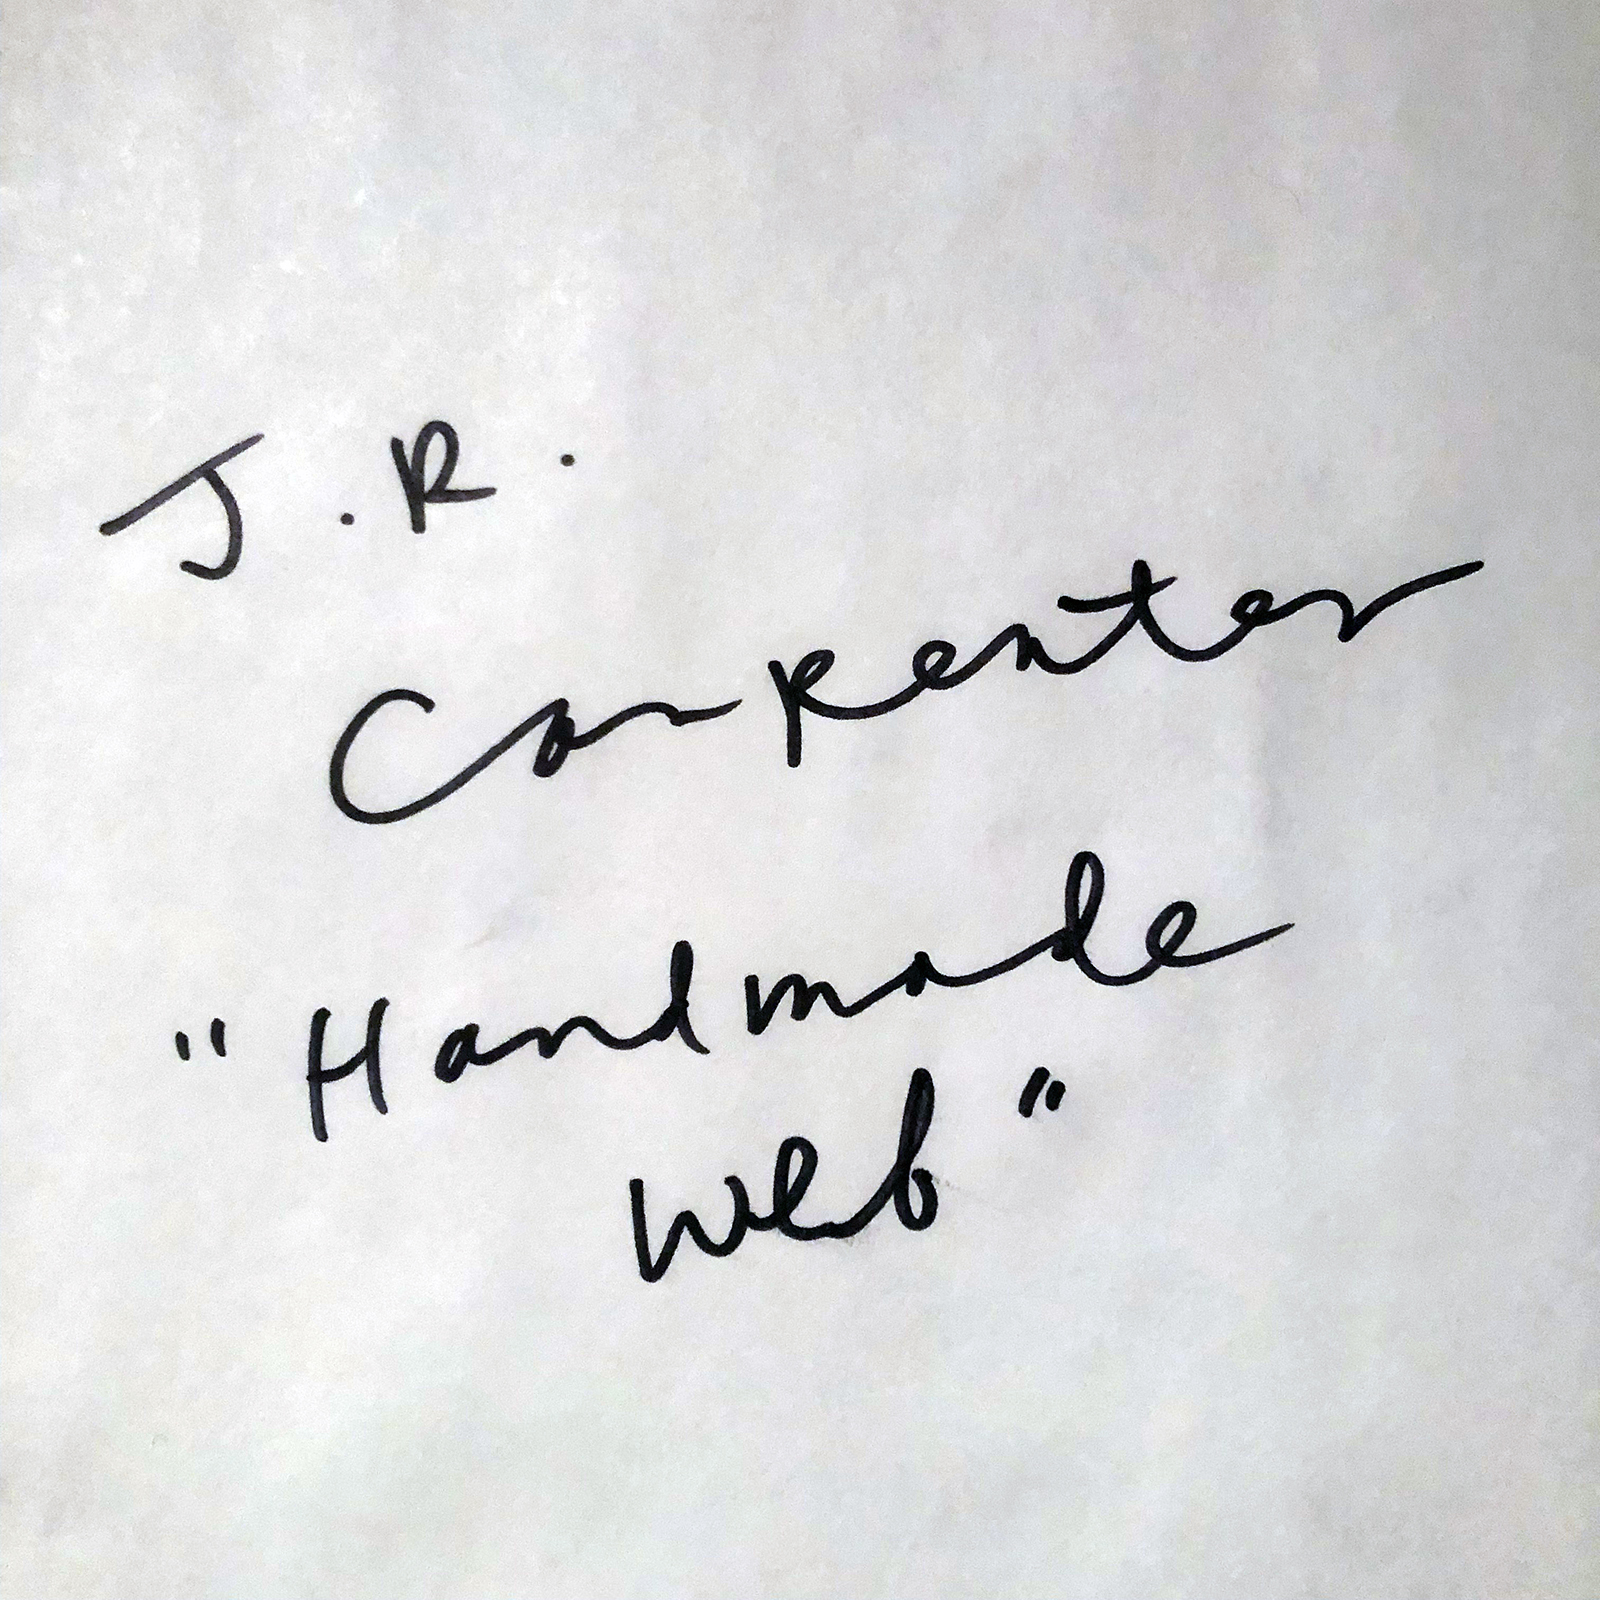 J.R.
Carpenter
"Handmade
Web"